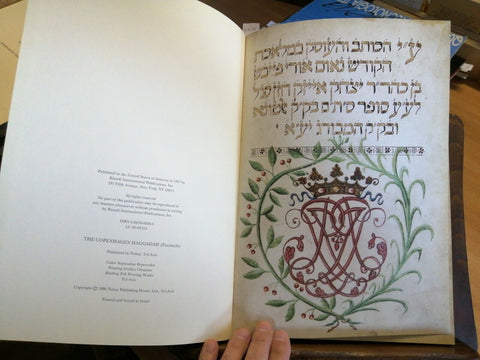 Published in the United States of America in 1987 by
Rizzoli International Publications, Inc.
597 Fifth Avenue, New York, NY 10017
All rights reserved
No part of this publication may be reproduced in
any manner whatsoever without permission in writing
by Rizzoli International Publications, Inc.
THE COPENHAGEN HAGGADAH (Facsimile)
Published by Nahar, Tel-Aviv
Color Separation Reprocolor
Printing
Binding
Tel-Aviv
Copyright © 1986 Nahar Publishing House, Ltd., Tel-Aviv
Printed and bound in Israel
ע״י הכותב והעוסק במלאכת
הקודש נאום אורי פייבש
בן כהר״ר יצחק אייזק
סופר סת״ם בק״ק אלטונא
ובק״ק המבורג יע״א